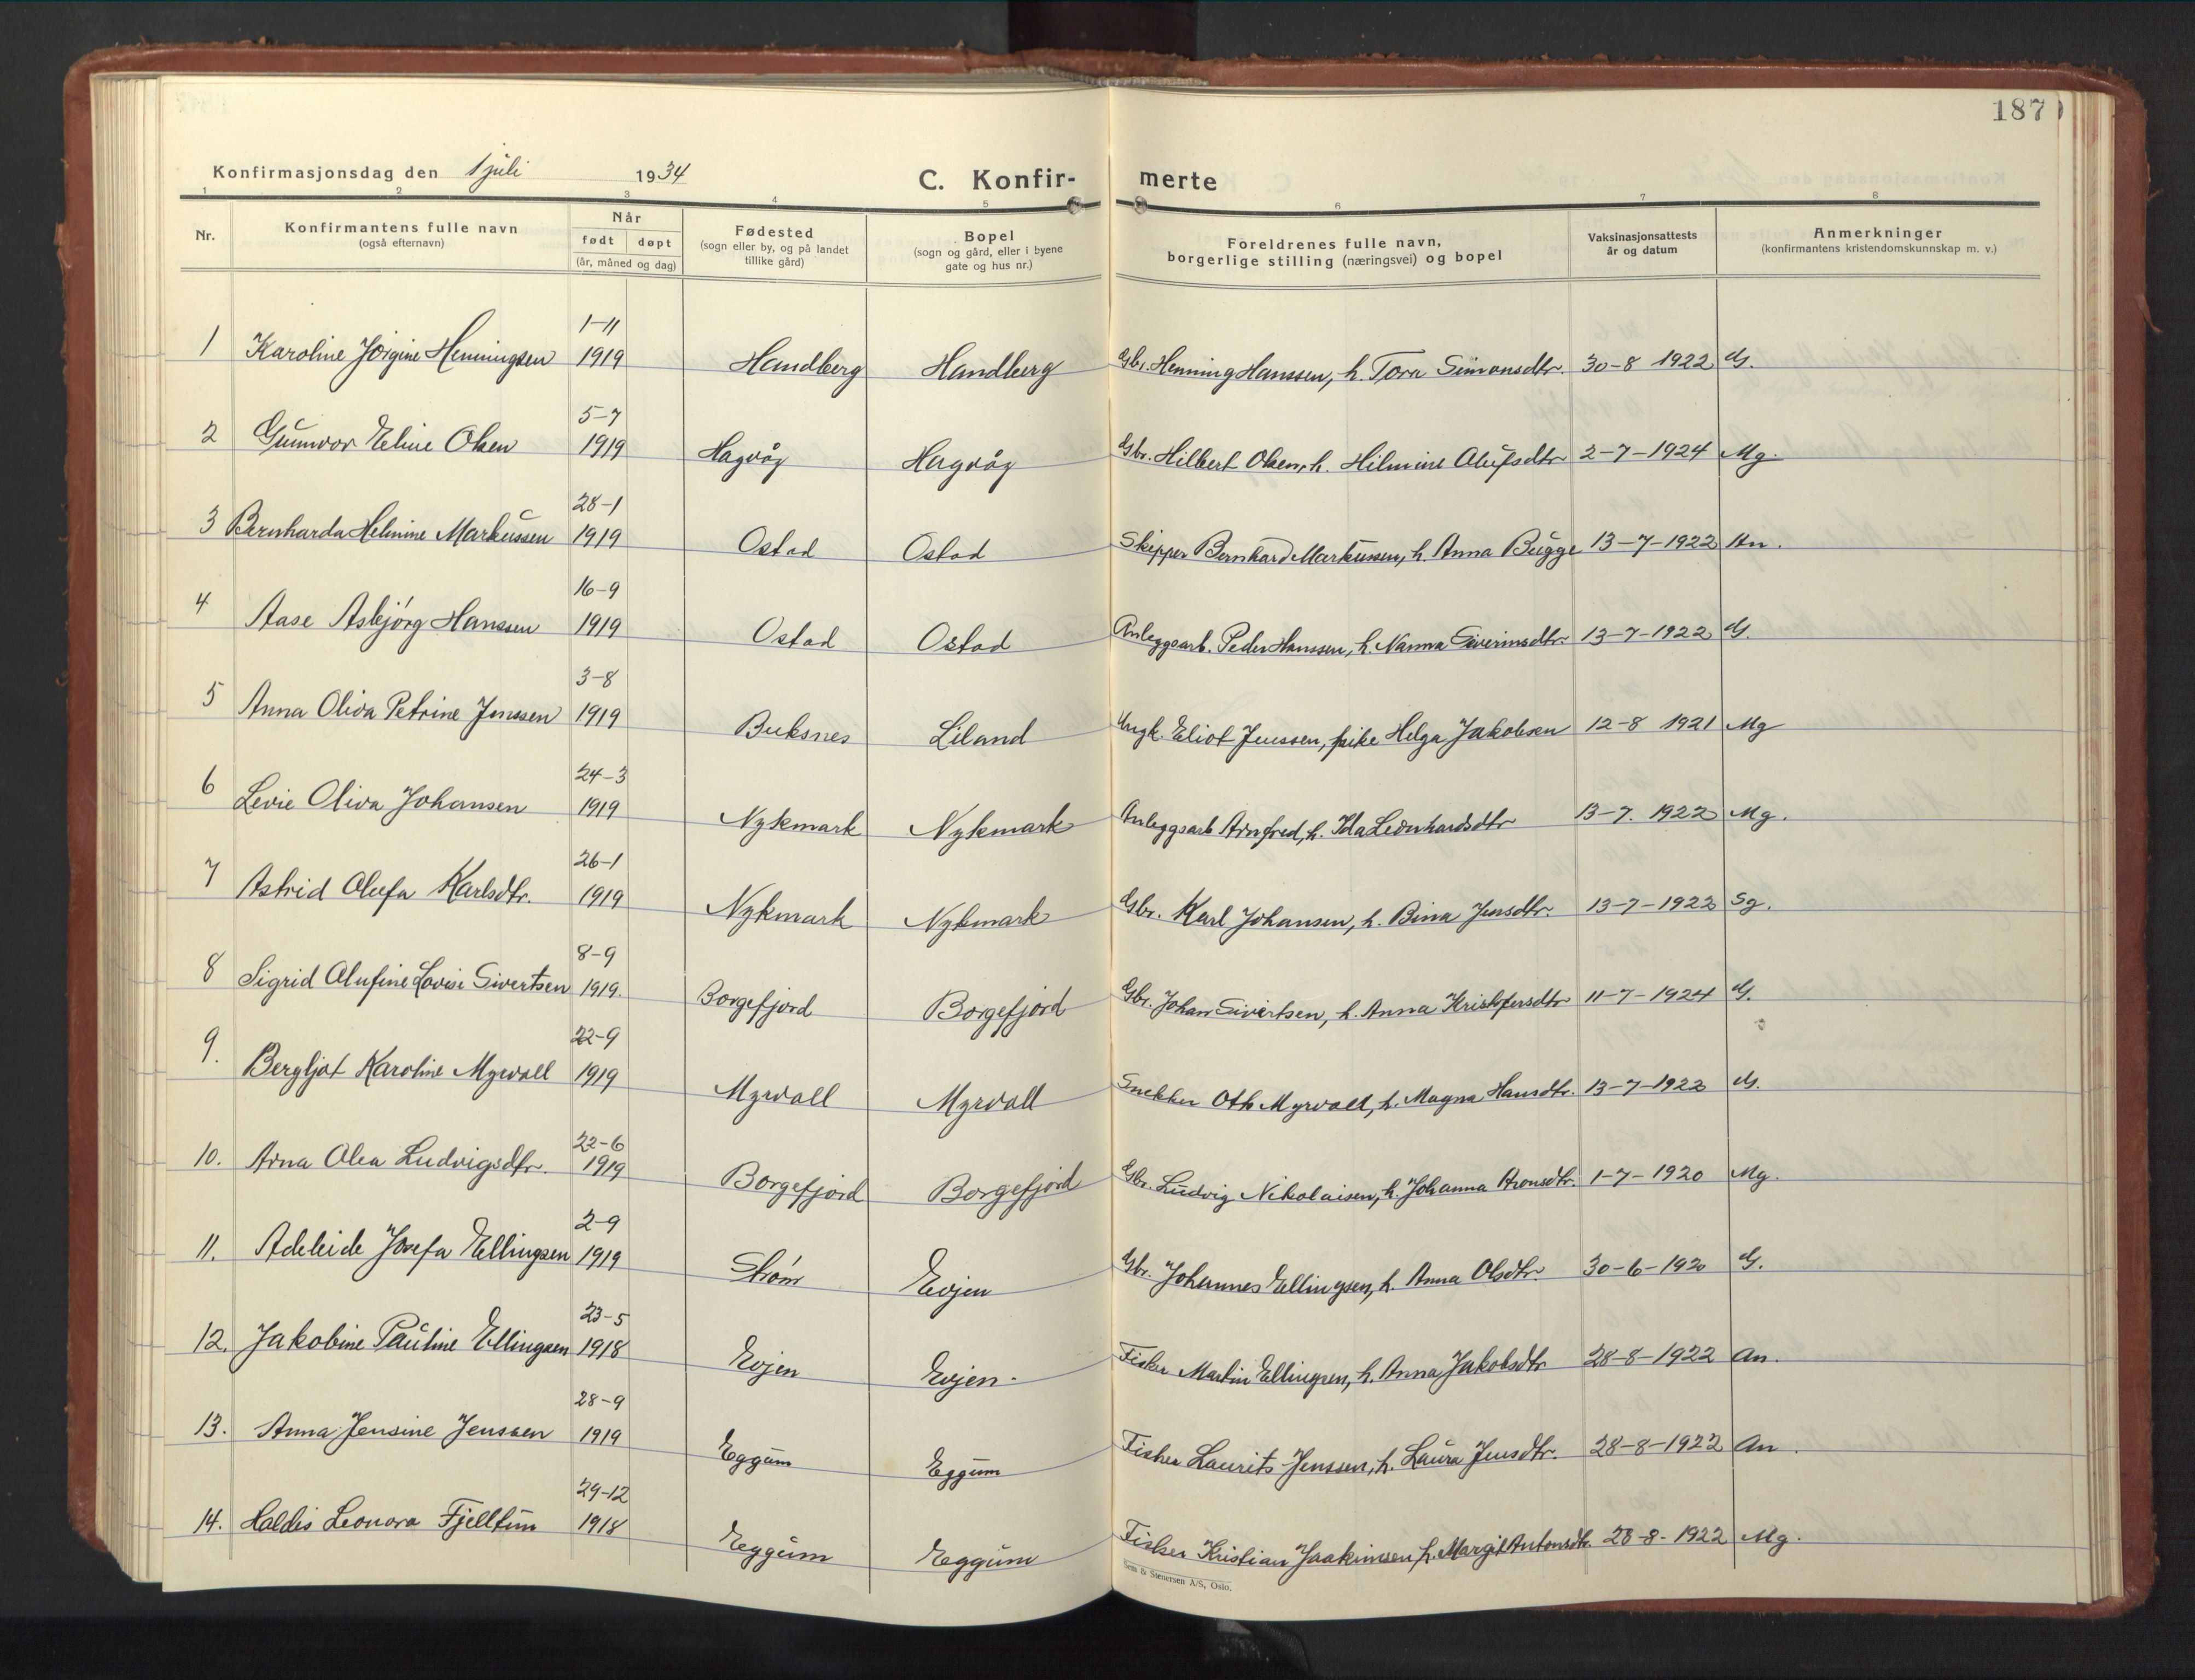 187
Konfirmasjonsdag den 1 juli 1934
C. Konfir- merte
1 2 3 4 5 6 7 8
Nr. Konfirmantens fulle navn (også efternavn) Når født døpt (år, måned og dag) Fødested (sogn eller by, og på landet tillike gård) Bopel (sogn og gård, eller i byene gate og hus nr.) Foreldrenes fulle navn, borgerlige stilling (næringsvei) og bopel Vaksinasjonsattests år og datum Anmerkninger (konfirmantens kristendomskunnskap m. v.)
1 Karoline Jørgine Henningsen 1-11 1919 Handberg Handberg Gbr. Henning Hanssen, h. Tora Simonsdtr. 30-8 1922 G.
2 Gunnvor Eline Olsen 5-7 1919 Hagvåg Hagvåg Gbr. Hilbert Olsen, h. Hilmine Olufsdtr 2-7-1924 Mg.
3 Bernharda Helmine Markussen 28-1 1919 Ostad Ostad Skipper Bernhard Markussen, h. Anna Bugge 13-7-1922 An.
4 Aase Asbjørg Hanssen 16-9 1919 Ostad Ostad Anleggsarb. Peder Hanssen, h. Nanna Sivertsdtr. 13-7-1922 G.
5 Anna Oliva Petrine Jenssen 3-8 1919 Buksnes Liland Ungk. Eliot Jenssen, pike Helga Jakobsen 12-8 1921 Mg
6 Levie Oliva Johansen 24-3 1919 Nykmark Nykmark Anleggsarb Arnfred, h. Ida Leonhardsdtr 13-7. 1922 Mg.
7 Astrid Olufa Karlsdtr. 26-1 1919 Nykmark Nykmark Gbr. Karl Johansen, h. Bina Jensdtr. 13-7-1922 Sg.
8 Sigrid Olufine Lovise Sivertsen 8-9 1919. Borgefjord Borgefjord Gbr. Johan Sivertsen, h. Anna Kristofersdtr 11-7-1924 G.
9. Bergljot Karoline Myrvoll 22-9 1919 Myrvoll Myrvoll Snekker Oth Myrvoll, h. Magna Hansdtr. 13-7-1922 G.
10. Arna Olea Ludvigsdtr. 22-6 1919 Borgefjord Borgefjord Gbr. Ludvig Nikolaisen, h. Johanna Aronsdtr. 1-7-1920 Mg.
11. Adeleide Josefa Ellingsen 2-9 1919 Strøm Evjen Gbr. Johannes Ellingsen, h. Anna Olsdtr. 30-6-1920 G.
12. Jakobine Pauline Ellingsen 23-5 1918 Evjen Evjen. Fisker Martin Ellingsen, h. Anna Jakobsdtr 28-8-1922 An.
13. Anna Jensine Jenssen 28-9 1919 Eggum Eggum Fisker Laurits Jenssen, h. Laura Jensdtr. 28-8-1922 An.
14. Haldis Leonora Fjelltun 29-12 1918 Eggum Eggum Fisker Kristian Joakimsen, h. Margit Antonsdtr. 28-8-1922 Mg.
Sem & Stenersen A/S, Oslo.